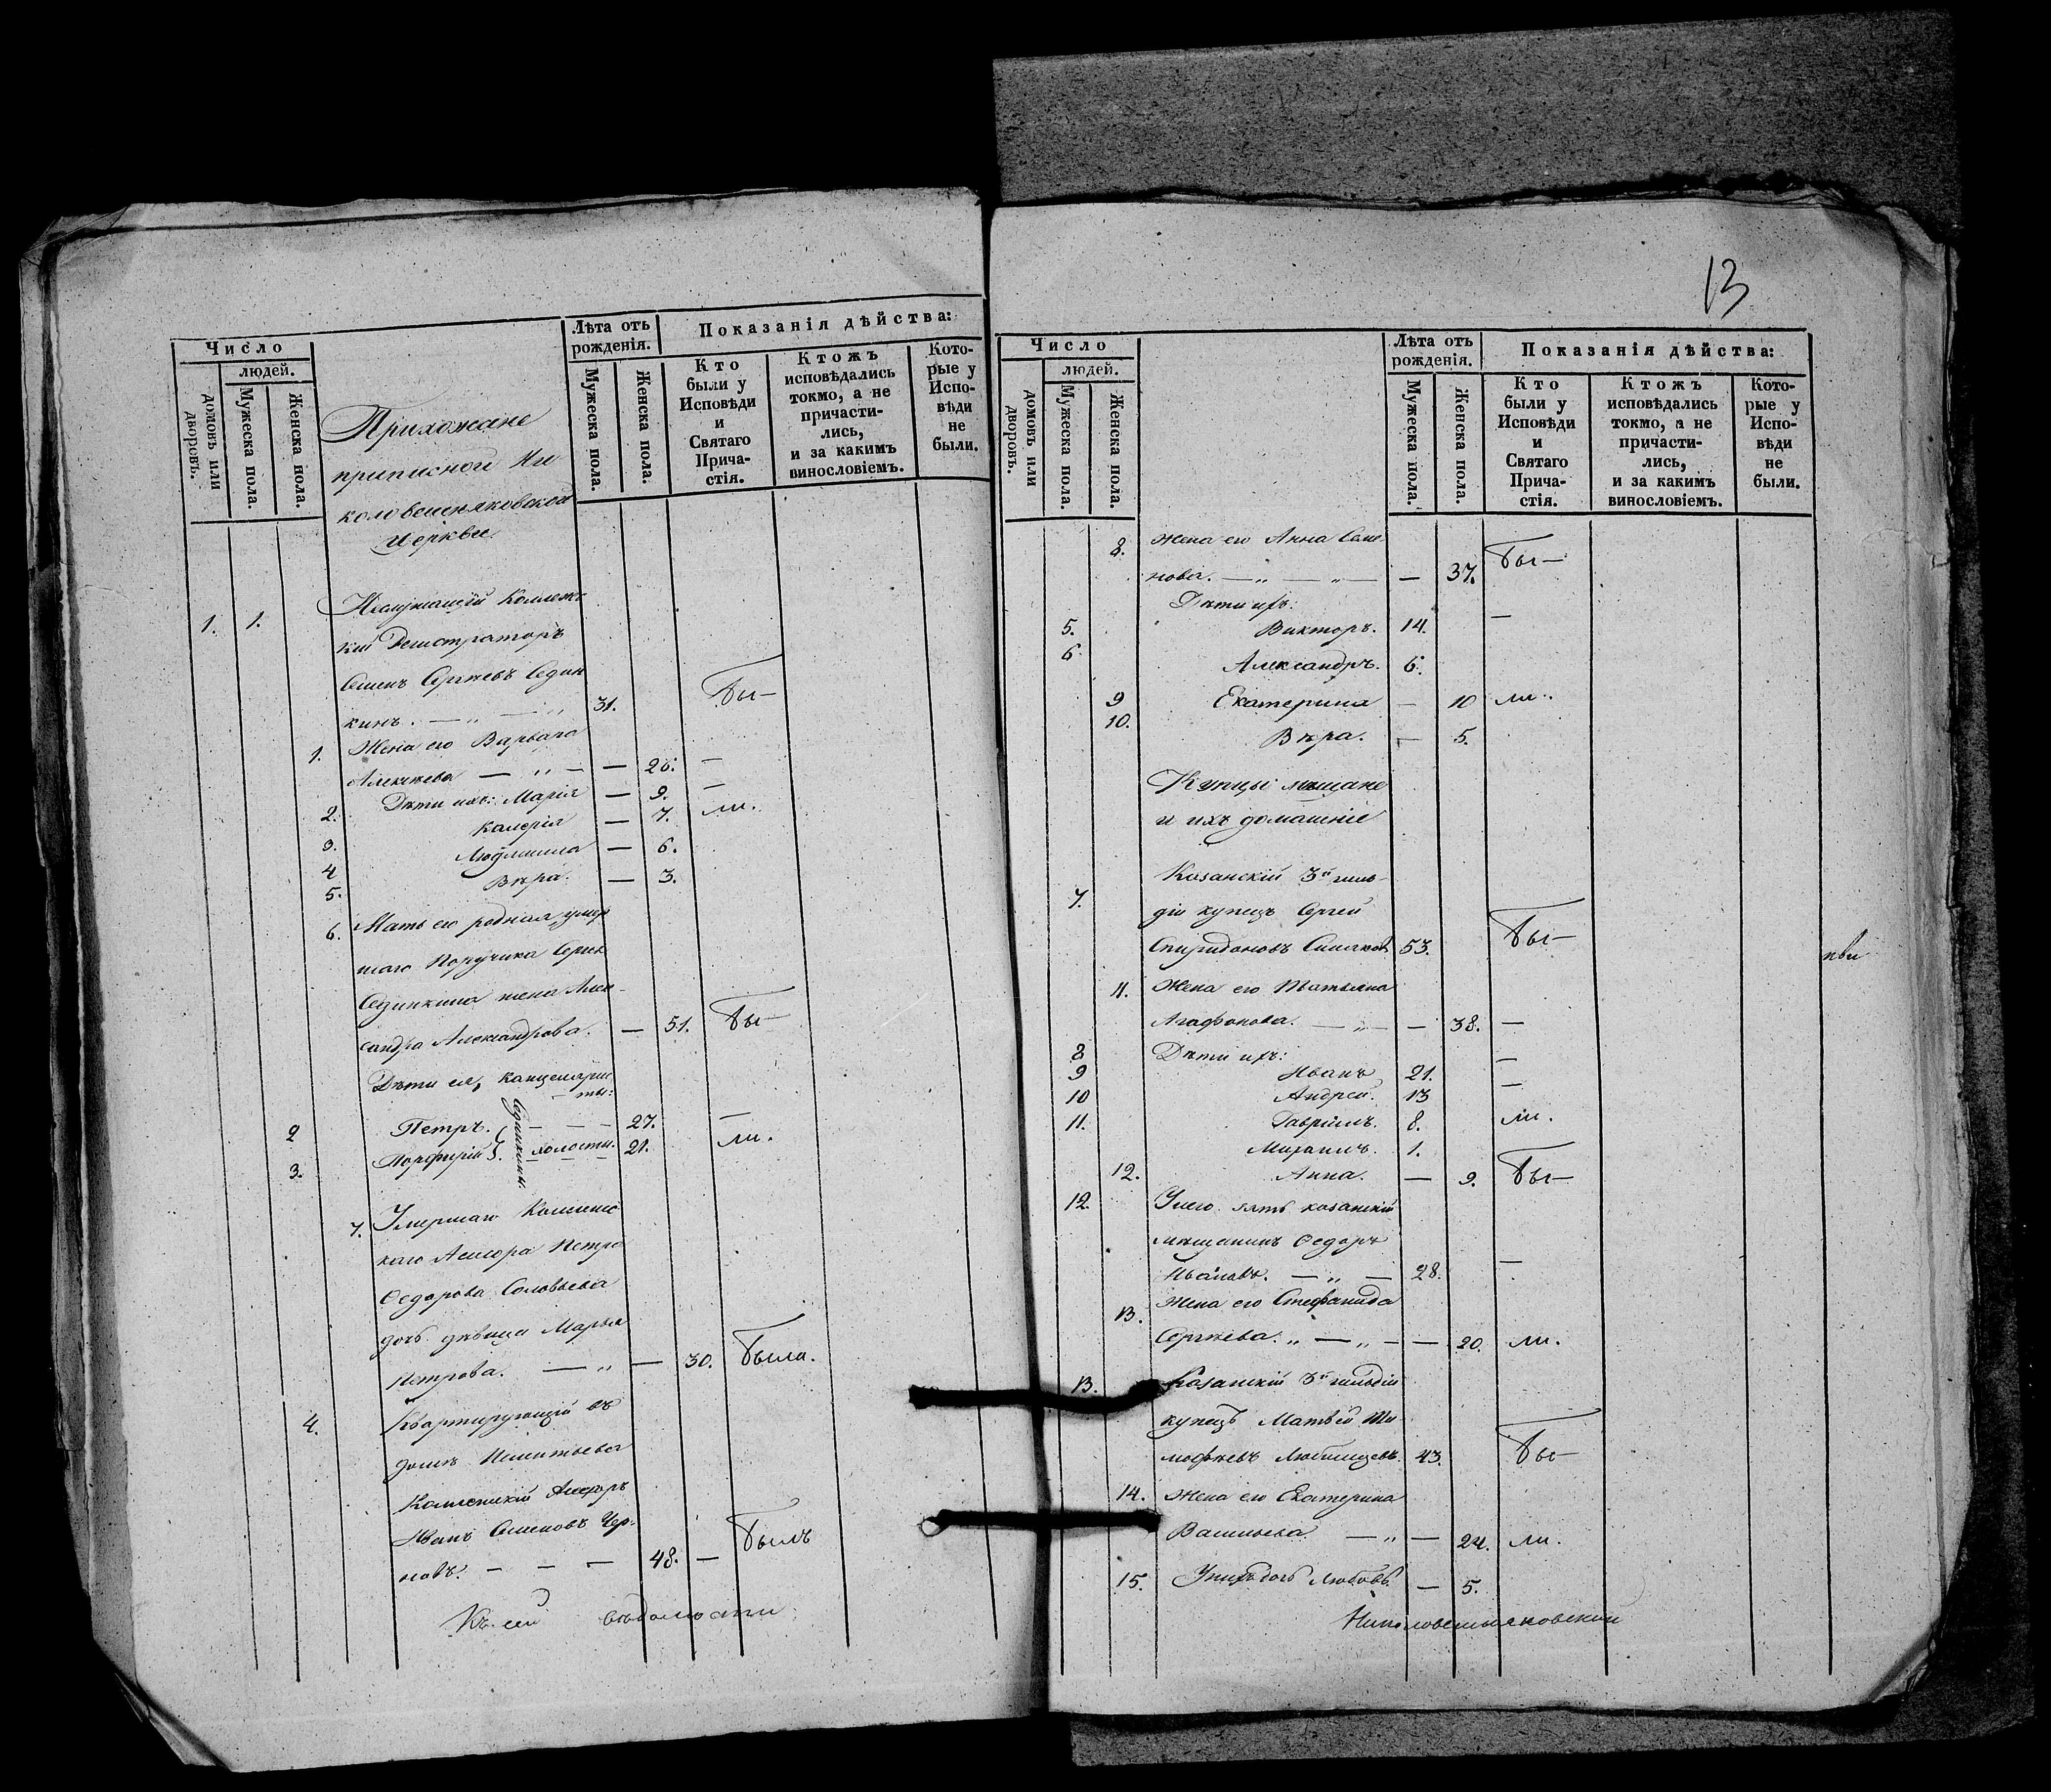 Число
людей.
домовъ или дворовъ.
Мужеска пола.
Женска пола.
Лѣта отъ рожденія.
Мужеска пола.
Женска пола.
Показанія дѣйства:
Кто были у Исповѣди и Святаго Прича-стія.
Ктожъ исповѣдались токмо, а не причасти-лись, и за какимъ винословіемъ.
Кото-рые у Испо-вѣди не были.
Прихожане
приписной Ни
коловешняковской
церкви.
1. 1. Неслужащій Коллежс
кій Регистраторъ
Семенъ Сергѣевъ Един
кинъ. — „ — „ 31. Бы—
1. Жена его Варвара
Алексѣева — „ — — 26. —
2. Дѣти ихъ: Марія — 9. —
3. Калерія — 7. ли.
4 Людмила — 6.
5. Вѣра. — 3.
6. Мать его родная, умер
шаго Поручика Сергѣя
Единкина жена Алек
сандра Александрова. — 51. Бы—
Дѣти ея, канцеляри
сты:
2 Петръ. — — — 27. —
3. Порфирій. холосты. 21. ли.
Единкины.
7. Умершаго Коллежс
каго Асесора Петра
Федорова Соловьева
дочь дѣвица Марья
Петрова. — „ — 30. Была.
4. Квартирующій въ
домѣ
Коллежскій Асесоръ
Иванъ Семеновъ Чер-
новъ. — — — 48. — Былъ
Къ сей вѣдомости
13
Число
людей.
домовъ или дворовъ.
Мужеска пола.
Женска пола.
Лѣта отъ рожденія.
Мужеска пола.
Женска пола.
Показанія дѣйства:
Кто были у Исповѣди и Святаго Прича-стія.
Ктожъ исповѣдались токмо, а не причасти-лись, и за какимъ винословіемъ.
Кото-рые у Испо-вѣди не были.
8. Жена его Анна Семе
нова. — „ — „ — — 37. Бы—
Дѣти ихъ:
5. Викторъ. 14. —
6. Александръ. 6.
9 Екатерина — 10 ли.
10. Вѣра. — 5.
Купцы мѣщане
и ихъ домашніе
7. Казанскій 3й гиль-
діи купецъ Сергей
Спиридоновъ 53. Бы—
11. Жена его Татьяна
Агафонова. — „ — — 38. —
Дѣти ихъ:
8 Иванъ 21. —
9 Андрей. 13 —
10 Гавріилъ. 8. ли.
11. Михаилъ. 1.
12. Анна. — 9. Бы—
12. У него зять казанскій
мѣщанинъ Федоръ
Ивановъ. — „ — 28. —
13. Жена его Стефанида
Сергѣева. „ — „ — — 20. ли.
13. Казанскій 3й гильдіи
купецъ Матвей Ти
мофѣевъ 43. Бы—
14. Жена его Екатерина
Васильева — „ — 24. ли.
15. У нихъ дочь Любовь — 5.
Николовешняковской
кви